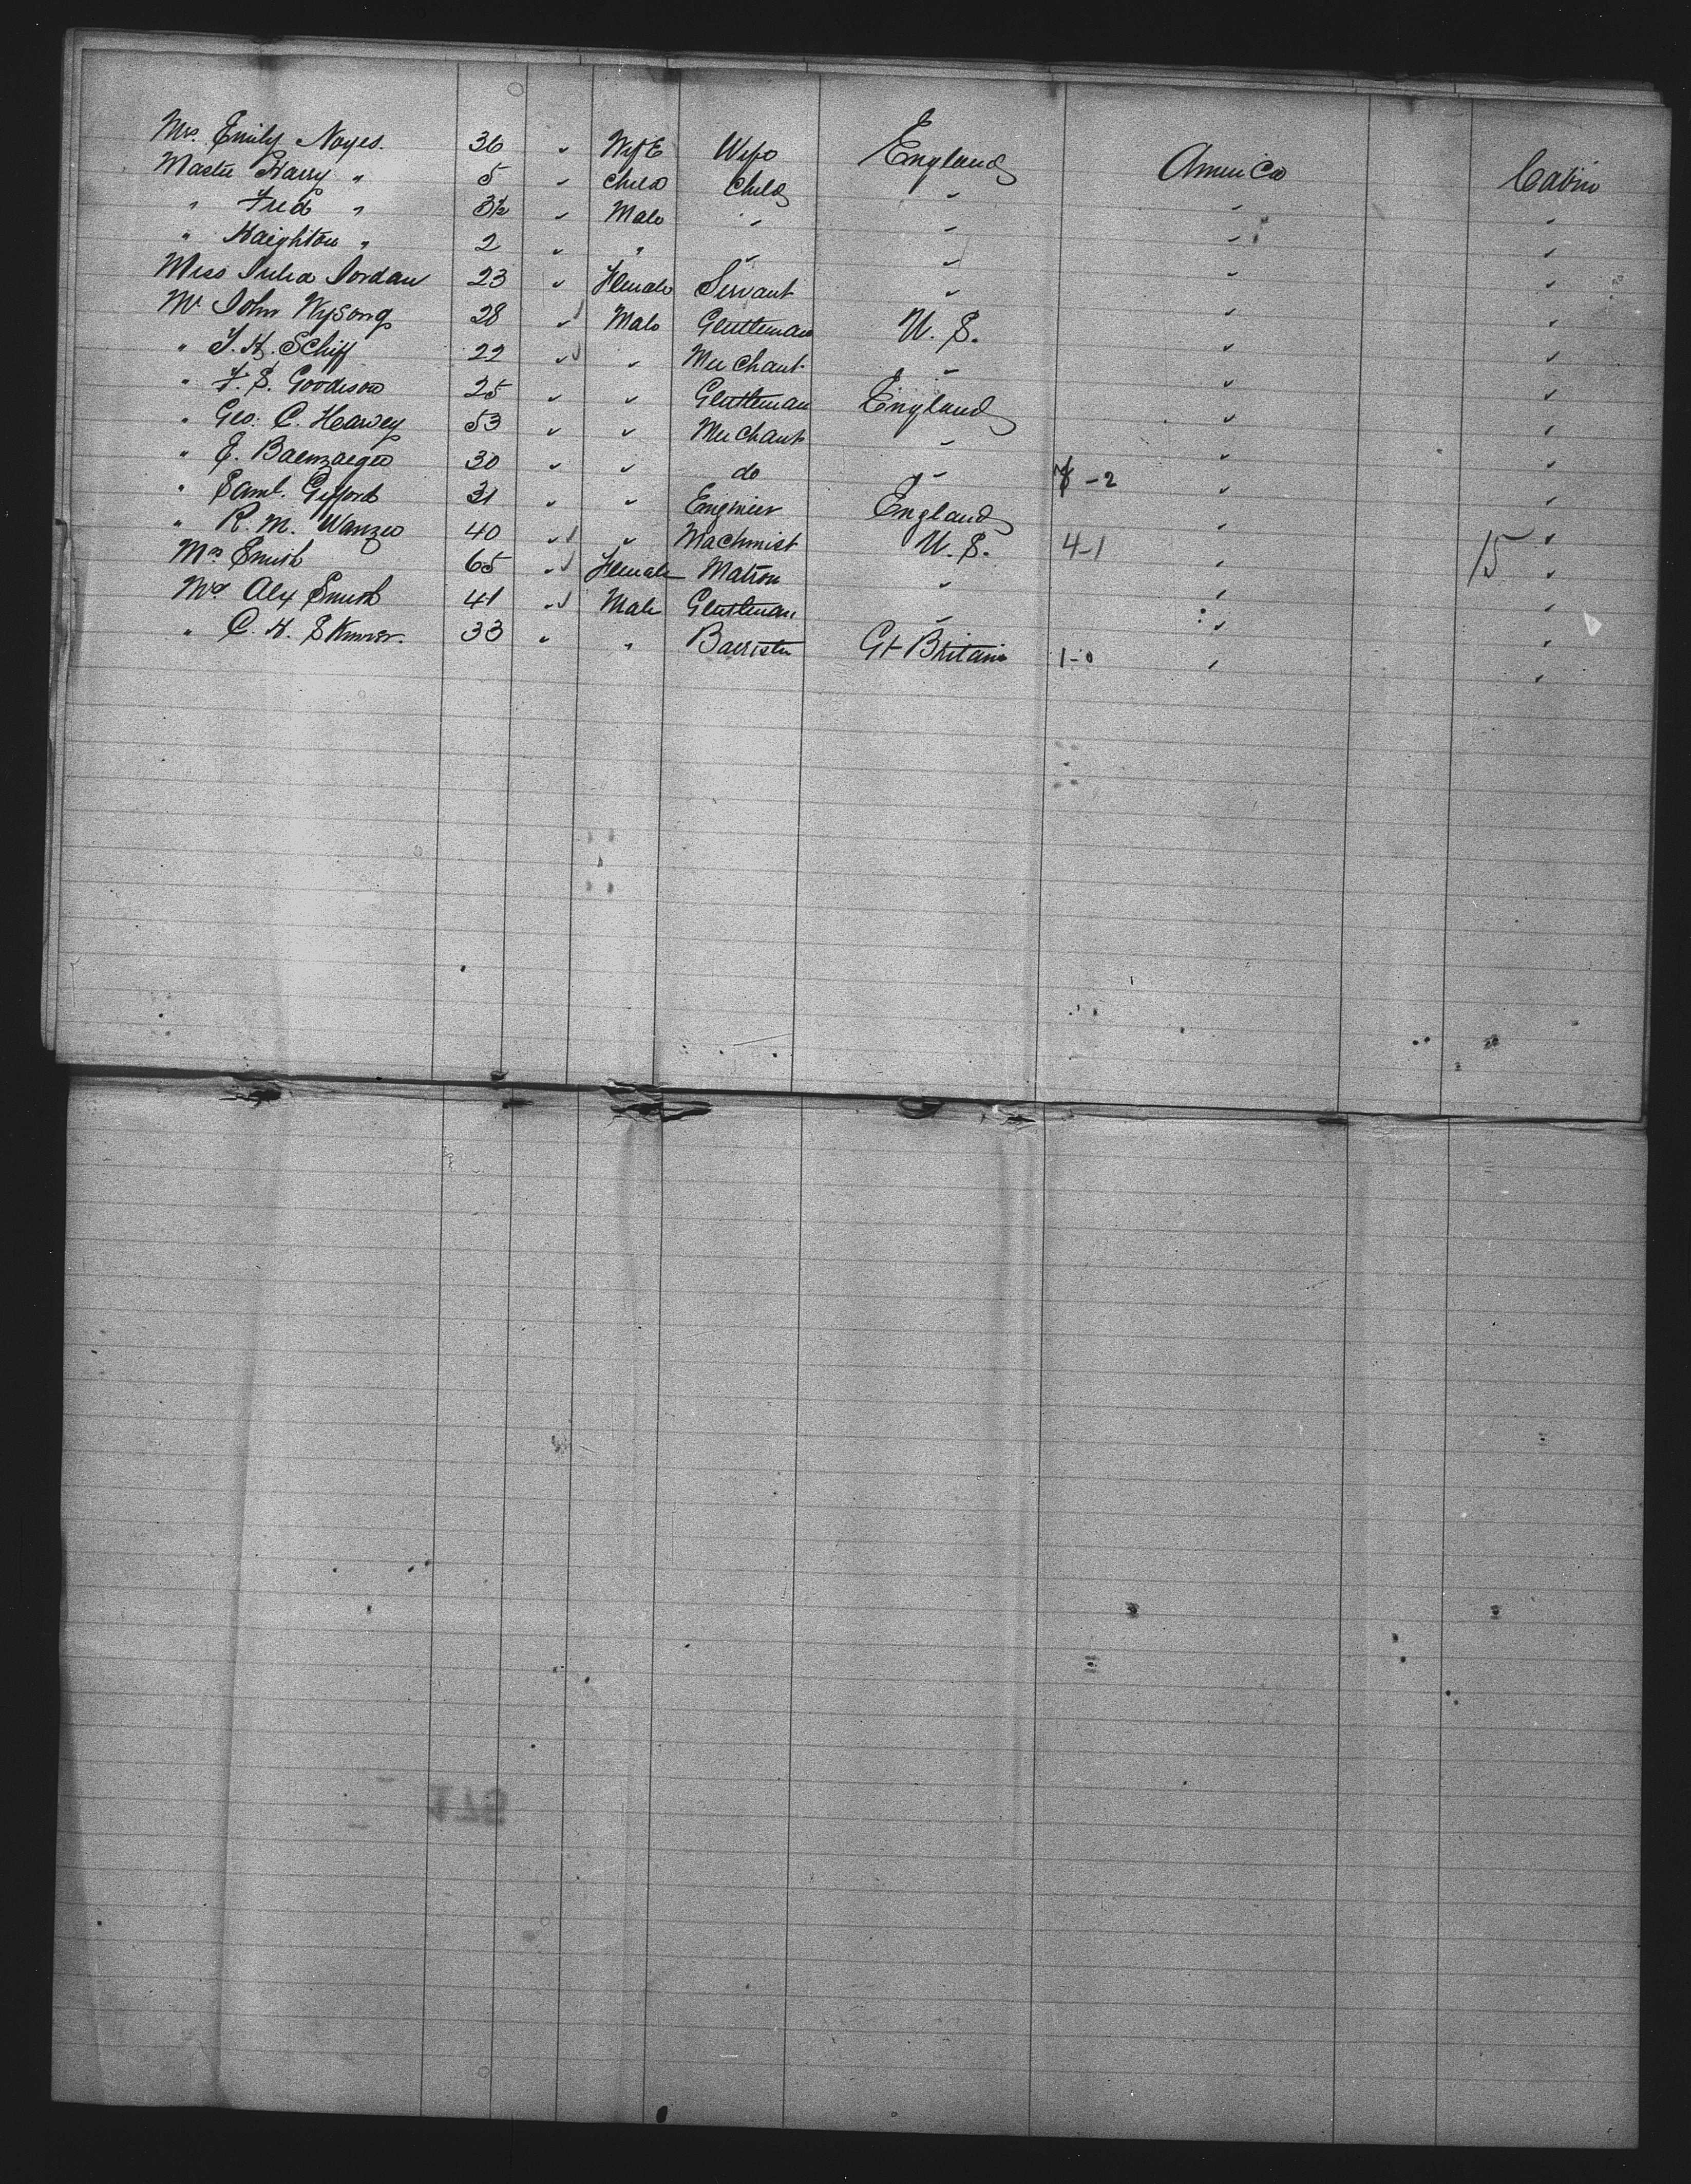 Mrs. Emily Noyes. 36 " Wife Wife England America Cabin
Master Harry " 5 " Child Child " " "
" Fred " 3½ " Male " " " "
" Haighton " 2 " " " " " "
Miss Julia Jordan 23 " Female Servant " " "
Mr John Wysong 28 " Male Gentleman U.S. " "
" J. H. Schiff 22 " " Merchant " " "
" F. S. Goodison 25 " " Gentleman England " "
" Geo. C. Harvey 53 " " Merchant " " "
" E. 30 " " do " 7-2 " "
" Saml. Gifford 31 " " Engineer England " "
" R. M. Wanzer 40 " " Machinist U.S. 4-1 " 15 "
Mrs Smith 65 " Female Matron " " "
Mr Alex Smith 41 " Male Gentleman " " "
" C. H. Skinner. 33 " " Barrister Gt Britain 1-0 " "